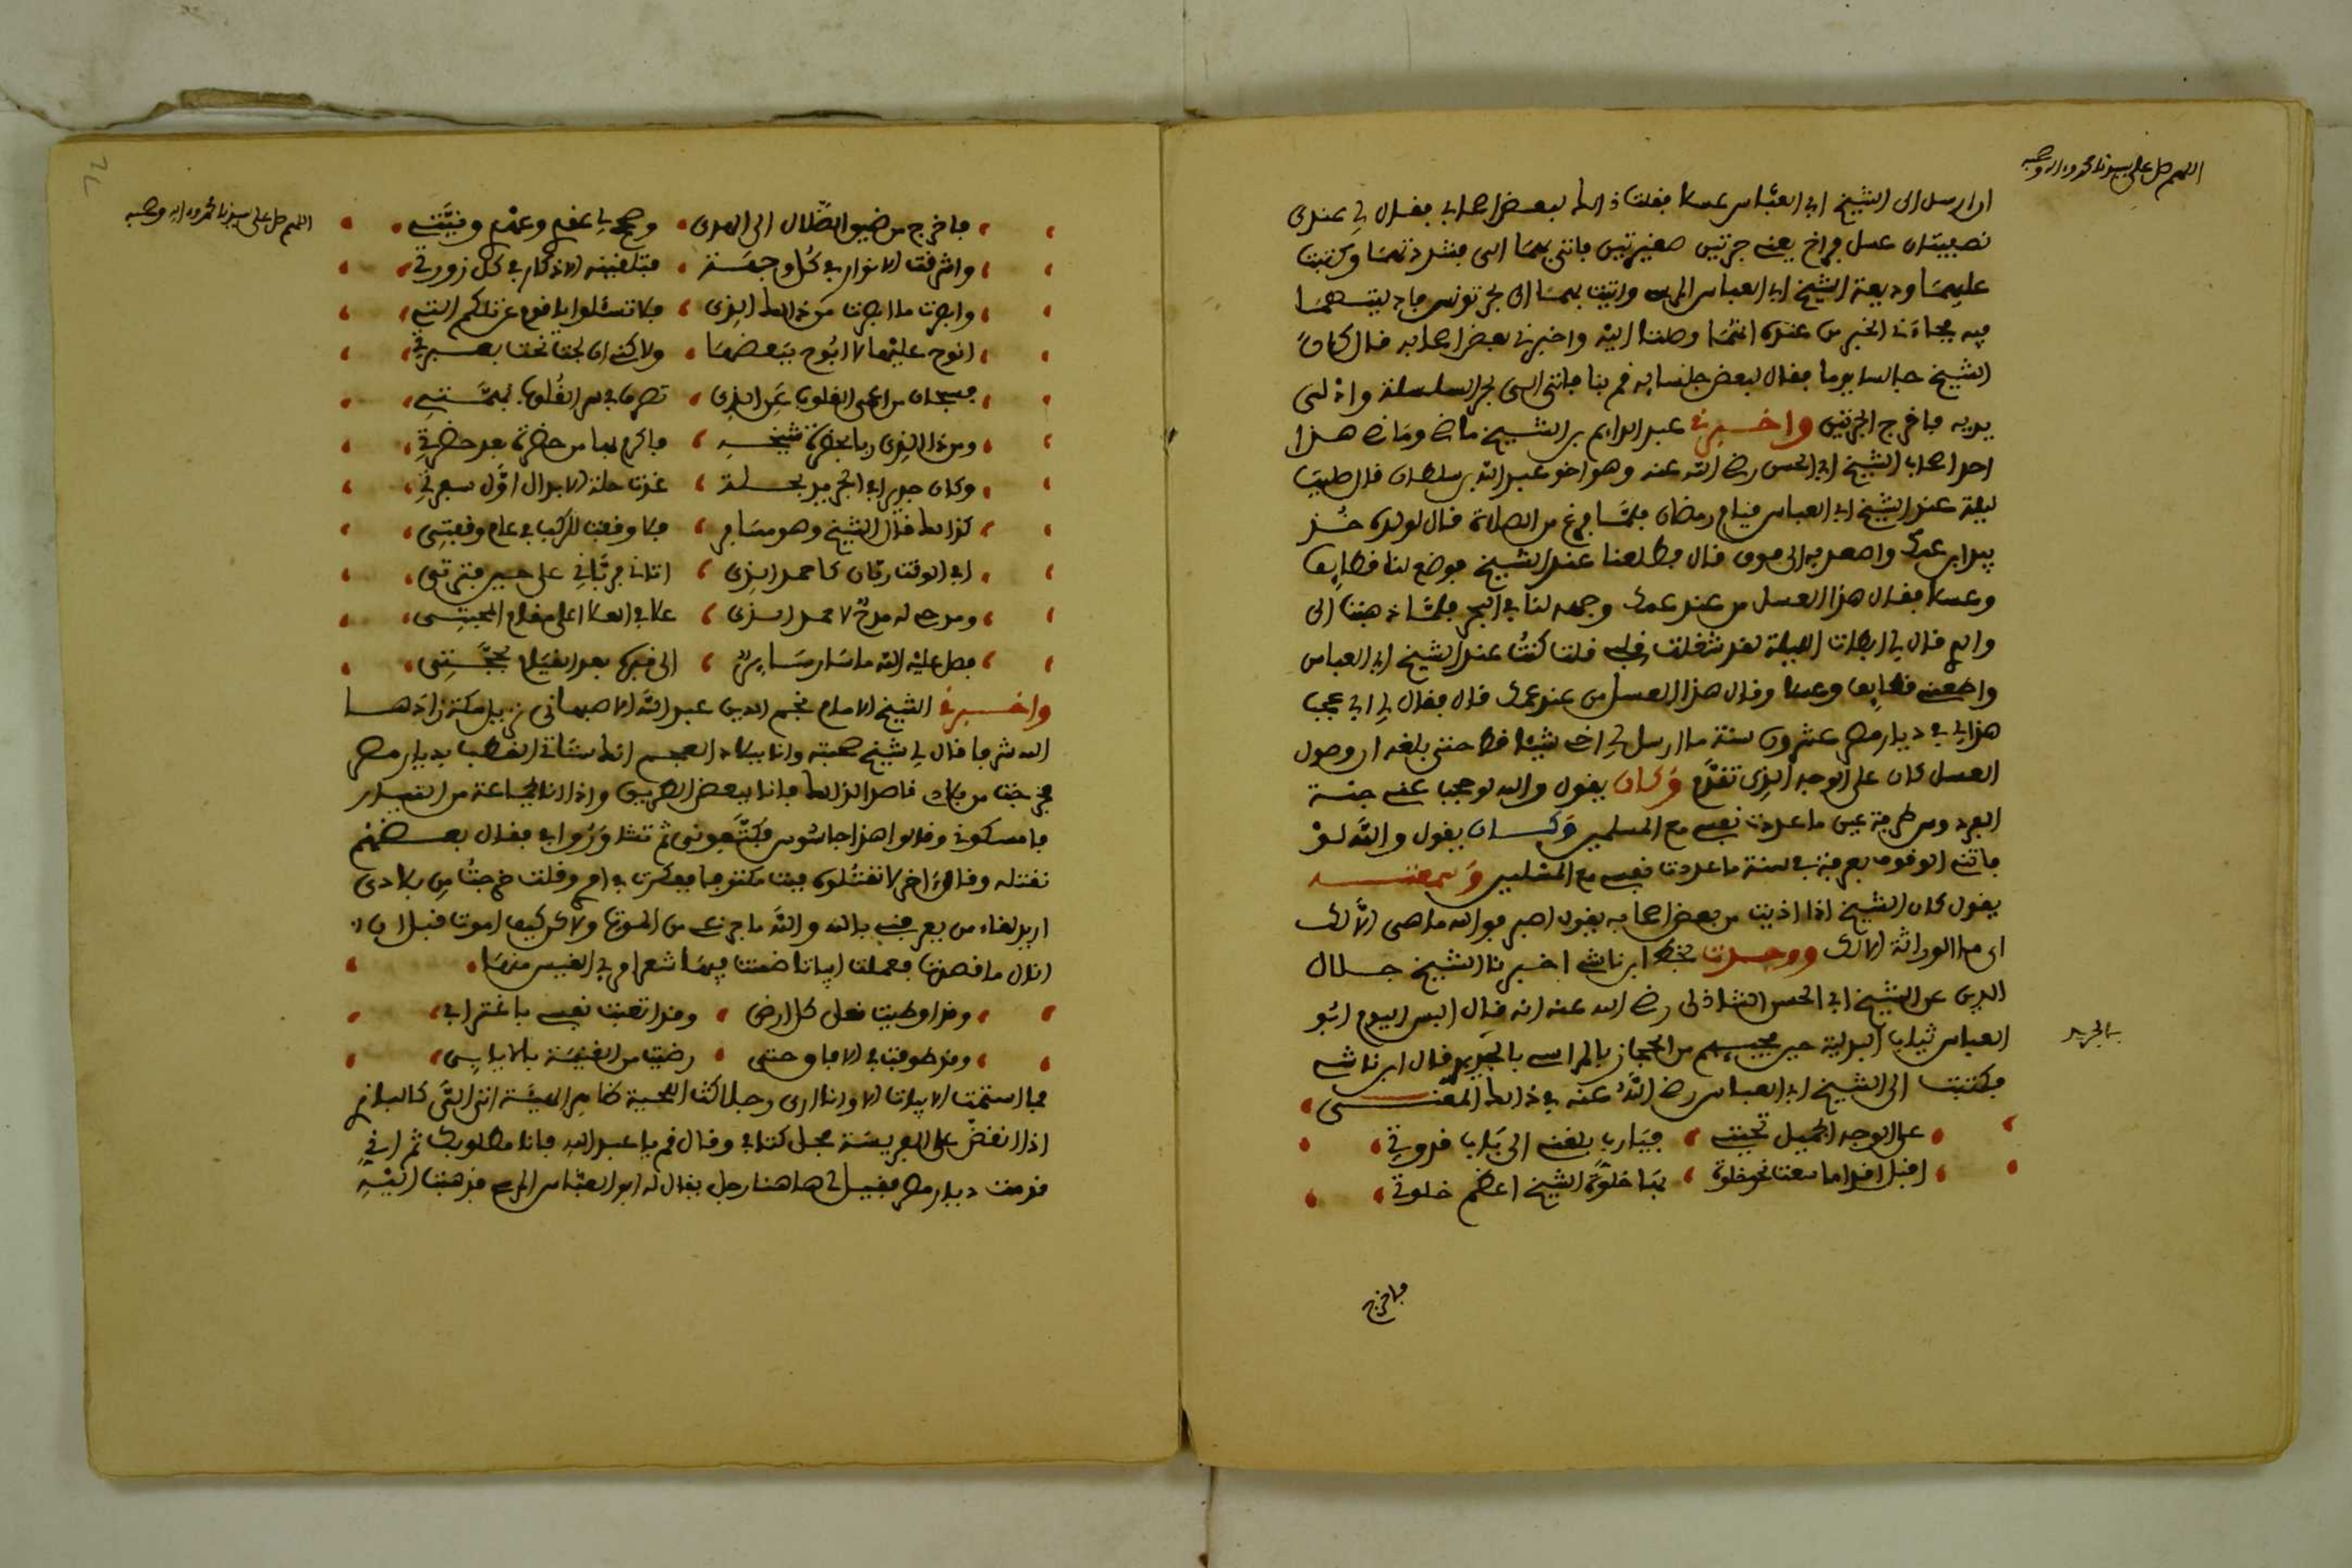 اللهم صل على سيدنا محمد وءاله وصحبه
ان ارسل الى الشيخ ابي العباس عسلا فقلت ذالك لبعض اصحابي فقال لي عندي
نصفيتان عسل فراخ يعني جرتين صغيرتين فاتني بهما الى فشددتهما وكتبت
عليهما وديعة الشيخ ابي العباس المرسي واتيت بهما الى بحر تونس فادليتهما
فيه فجاءني الخبر من عنده انهما وصلتا اليه واخبرني بعض اصحابه قال كان
الشيخ جالسا يوما فقال لبعض جلسايه قم بنا فاتى الى بحر السلسلة وادلى
يديه فاخرج الجرتين واخبرني عبد الدايم بن الشيخ ماضي وماضي هذا
احد اصحاب الشيخ ابي الحسن رضي الله عنه وهو اخو عبد الله بن سلطان قال صليت
ليلة عند الشيخ ابي العباس قيام رمضان فلما فرغ من الصلاة قال لولده خذ
بيد ابن عمك واصعد به الى فوق قال فطلعنا عند الشيخ فوضع لنا قطايف
وعسلا فقال هذا العسل من عند عمك وجهه لنا في البحر فلما ذهبت الى
والدي قال لي ابطات الليلة لقد شغلت قلبي قلت كنت عند الشيخ ابي العباس
واطعمني قطايف وعسلا وقال هذا العسل من عند عمك قال فقال لي ابي عجب
هذا لي في ديار مصر عشرون سنة ما ارسل لي اخي شيئا قط حتى بلغه ان وصول
العسل كان على الوجه الذي تقدم وكان يقول والله لو حجب عني جنة
الفردوس طرفة عين ما عددت نفسي مع المسلمين وكان يقول والله لو
فاتني الوقوف بعرفة في سنة ما عددت نفسي مع المسلمين وسمعته
يقول كان الشيخ اذا اذيت من بعض اصحابه يقول اصبر فوالله ما هي الا لك
اي ما الوراثة الا لك ووجدت بخط ابن ناشي اخبرنا الشيخ جلال
الدين عن الشيخ ابي الحسن الشاذلي رضي الله عنه انه قال البس اليوم ابو
العباس ثياب البدلية حين مجيبهم من الحجاز بالمراسي بالجزيرة قال ابن ناشي
بالجزيرة
فكتبت الى الشيخ ابي العباس رضي الله عنه في ذالك المعنى
على الوجه الجميل تحيتي ، فيارب بلغني الى باب قدوتي
اقبل اقداما سعت نحو خلوة ، بها خلوة الشيخ اعظم خلوتي
فاخرج
اللهم صل على سيدنا محمد وءاله وصحبه
فاخرج من ضيو الضلال الى الهدى ، وصح لي عقدي وعزمي ونيتي
واشرقت الانوار في كل وجهة ، فتلقينه الاذكار في كل زورتي
وابصرت ما ابصرت من ذالك الذي ، فلا تسئلوا يا قوم عن ذلكم التي
انوح عليها لا ابوح ببعضها ، ولاكنني ان بحت بحت بعبرتي
فسبحان من اعمى القلوب عن الذي ، تصرف في سر القلوب بهمتي
ومن ذا الذي ربا بحضرة شيخه ، فاكرم بها من حضرة بعد حضرتي
وكان جديرا في التجريد بحلة ، غدت حلة الابدال اول سفرتي
كذالك قال الشيخ وهو مسافر ، فلا وقعت للركب في عام وقفتي
ابي الوقت ربان كاحمد الذي ، اتاني فرباني على حين فترتي
ومدحي له مدح لاحمد الذي ، علا في العلا اعلى مقام المحبتي
فصلى عليه الله ما سار ساير ، الى قبره بعد القيام بحجتي
واخبرني الشيخ الامام نجم الدين عبد الله الاصبهاني نزيل مكة زادها
الله شرفا قال لي شيخ صحبته وانا ببلاد العجم انك ستلقى القطب بديار مصر
فخرجت من بلادي قاصدا لذالك فانا ببعض الطريق واذا انا بجماعة من التتار
فامسكوني وقالوا هذا جاسوس فكتفوني ثم تشاوروا في فقال بعضهم
نقتله وقال اخر لا نقتلوه فبت مكتوفا ففكرت في امري وقلت خرجت من بلادي
اريد لقاء من يعرفني بالله والله ما جزعي من الموت ولاكن كيف اموت قبل ان
انال ما قصدت فعملت ابياتا ضمنت فيها شعر امرئ القيس منها
وقد اوطيت نعلى كل ارض ، وقد اتعبت نفسي باغترابي
وقد طوفت في الافاق حتى ، رضيت من الغنيمة بالاياب
فما استتمت الابيات الا وانا ارى رجلا كث اللحية ظاهر الهيئة اتى الي كالبازي
اذا انقض على الفريسة فحل كتافي وقال قم يا عبد الله فانا مطلوبك ثم اني
قدمت ديار مصر فقيل لي ها هنا رجل يقال له ابو العباس المرسي فذهبت اليه